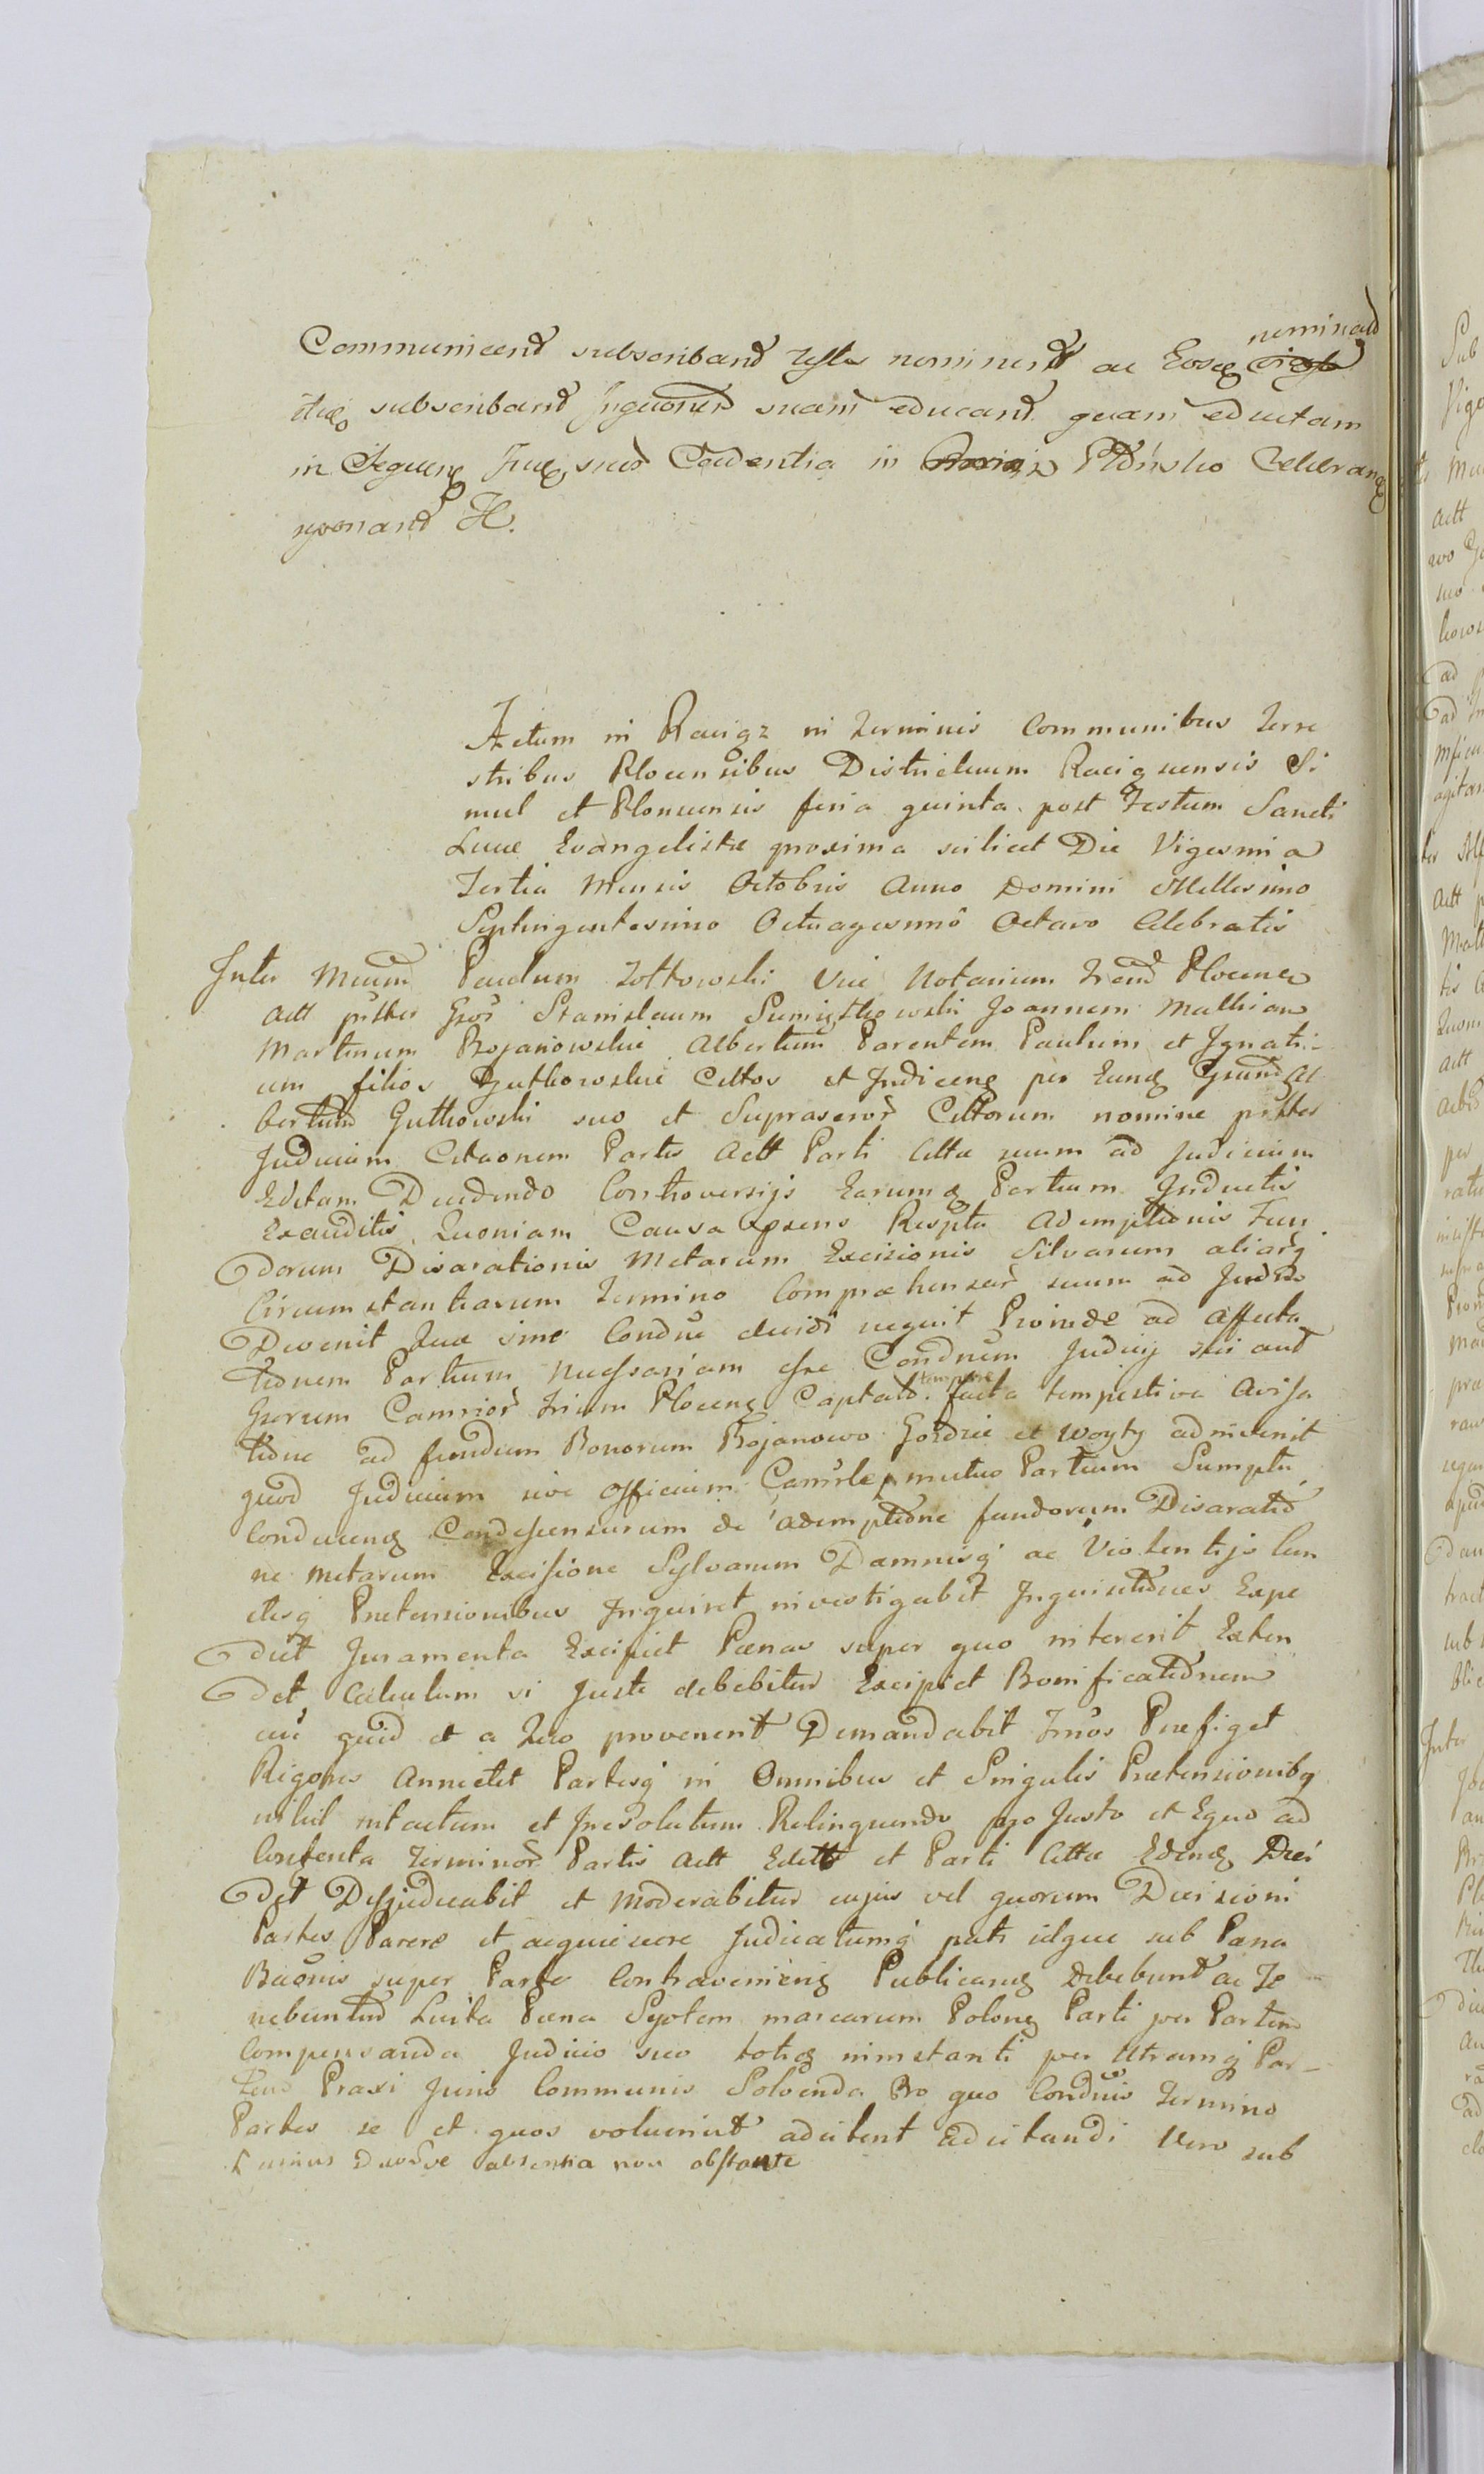 Communicand subscriband Testes nominand ac Eosq nominand
itaq subscriband Inquonem suam educand quam eductam
in Sequenq Trnq Cadentia in Płońsko Celebranq
reproducand H.
Actum in Raciąz in Terminis Communibus Terre
stribus Plocensibus Districtuum Raciązensis Si
mul et Plonensis feria quinta post Festum Sancti
Lucae Evangelistae proxima scilicet Die Vigesmia
Tertia Mensis Octobris Anno Domini Millesimo
Septingentesimo Octuagesimo Octavo Celebratis
Inter Mcum Paulum Zołtowski Vice Notarium Plocen
Actt Gsos Stanislaum Joannem Mathiam
Martinum Bojanowskie Albertum Parentem Paulum et Ignati-
um filios Gutkowskie Cittos et Judicenq per Eunq Gsum Al
bertum Gutkowski suo et Suprascrior Cittorum nomine
Judicium Citaonem Partis Actt Parti Cittae suum ad Judicium
Editam Ducendo Controversijs Earumq Partium Inductis
Exauditis Quoniam Causa praesens Resptu Ademptionis Fun
dorum Disarationis Metarum Excisionis Silvarum aliarq
Circumstantiarum Termino Comprehensar suum ad Judm
Devenit Quae sine Condnu decidi nequit Proinde ad Affecta
tionem Partium necessariam esse Condnem Judicij sui aut
Gsorum Camrior Trium Plocenq Captato tempore facta tempestiva Avisa
tione ad fundum Bonorum Bojanowo Gozdzie et Woyty adinvenit
quod Judicium sive Officium Camrle mutuo Partium Sumptu
Conducenq Condescensurum de ademptione fundorum Disaratio
ne metarum Excisione Sylvarum Damnisq ac Violentijs Cun
ctisq Pretensionibus Inquiret investigabit Inquisitiones Expe
diet Juramenta Excipiet Paenas super quo intererit Exten
det Calculum si Juste debebitur Excipiet Bonificationem
cui quid et a Quo provenerit Demandabit Trnos Praefiget
Rigores Annectet Partesq in Omnibus et Singulis Praetensionibq
nihil intactum et Inresolutum Relinquendo pro Justo et Equo ad
Contenta Terminor Partis Actt Editt et Parti Cittae Edenq Deci
det Dissjudicabit et Moderabitur cujus vel quorum Decisioni
Partes Parere et acquiescere Judicatumq pati idque sub Paena
Baonis super Parte Contravenienq Publicanq debebunt ac Te
nebuntur Luita Paena Sptem marcarum Polonq Parti per Partem
Compensanda Judicio suo totiq instanti per Utramq Par-
tem Praxi Juris Communis Solvenda Pro quo Condnis Termino
Partes se et quos voluerint adcitent adcitandi Vero sub
Unius Duorve absentia non obstante